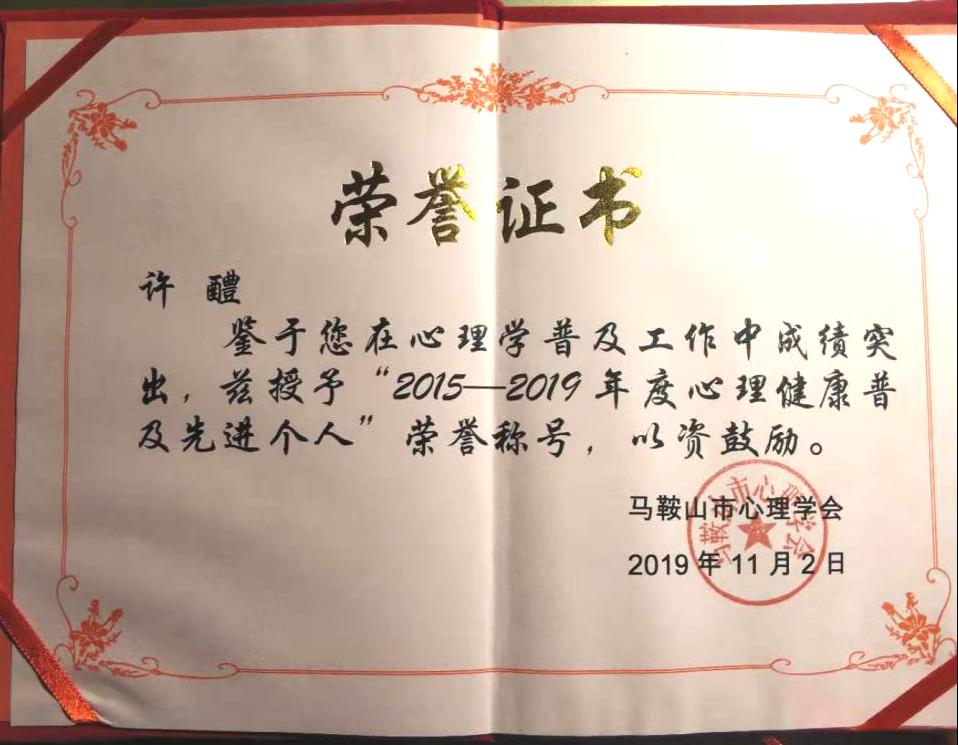 荣誉证书
许 醴
鉴于您在心理学普及工作中成绩突
出，兹授予“2015—2019年度心理健康普
及先进个人”荣誉称号，以资鼓励。
马鞍山市心理学会
2019年11月2日
马鞍山市心理学会